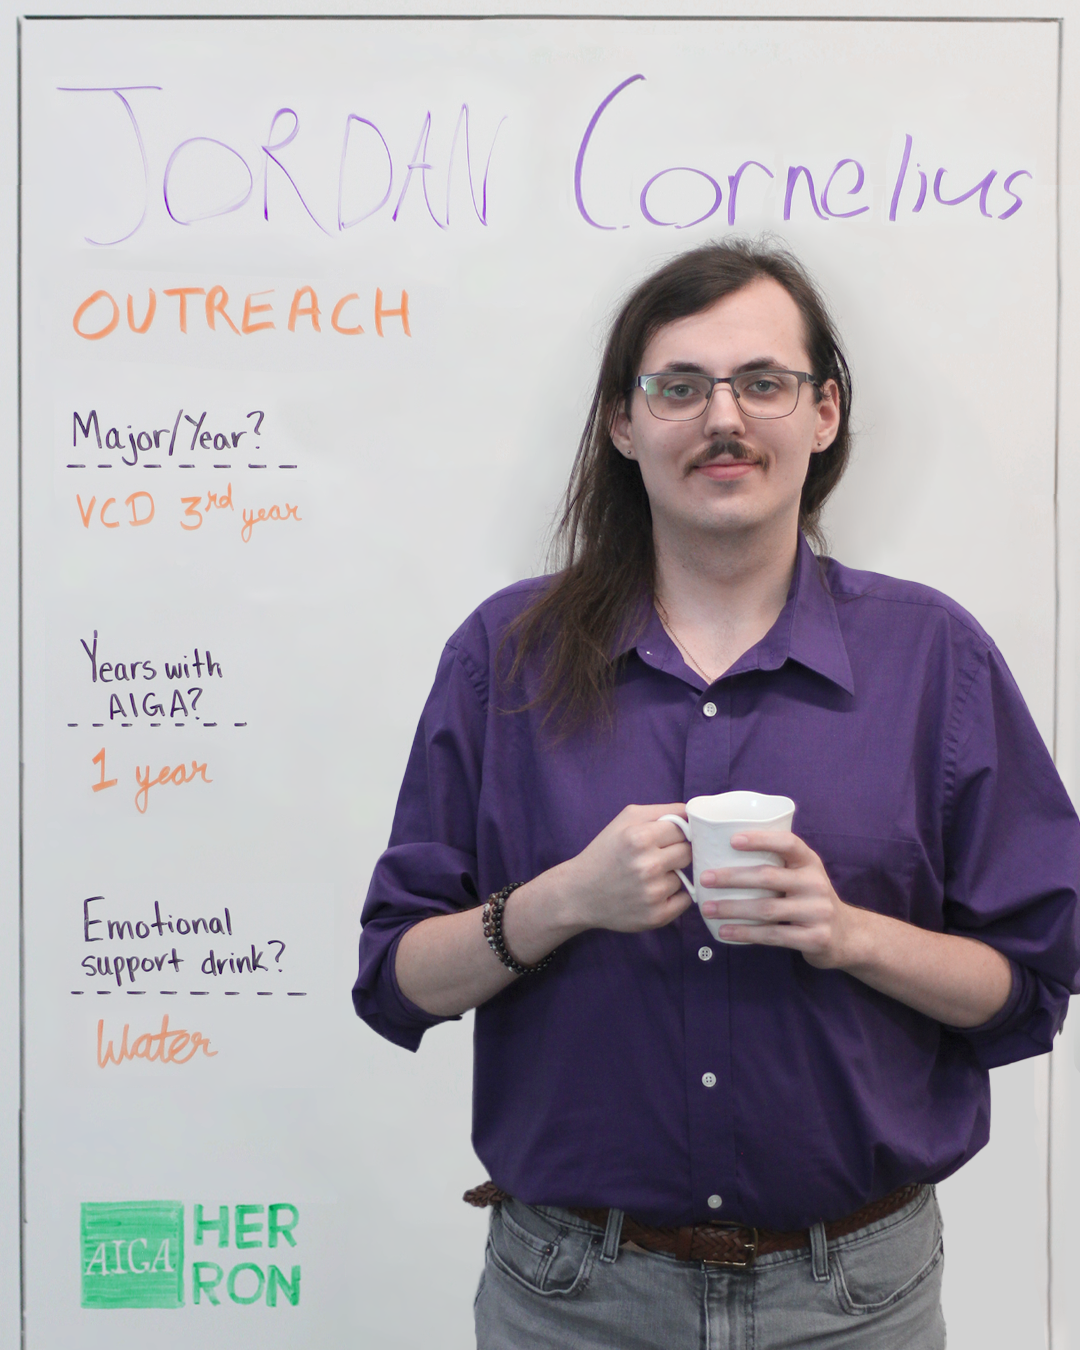 JORDAN Cornelius
OUTREACH
Major/Year?
VCD 3rd year
Years with
AIGA?
1 year
Emotional
support drink?
Water
AIGA
HER
RON